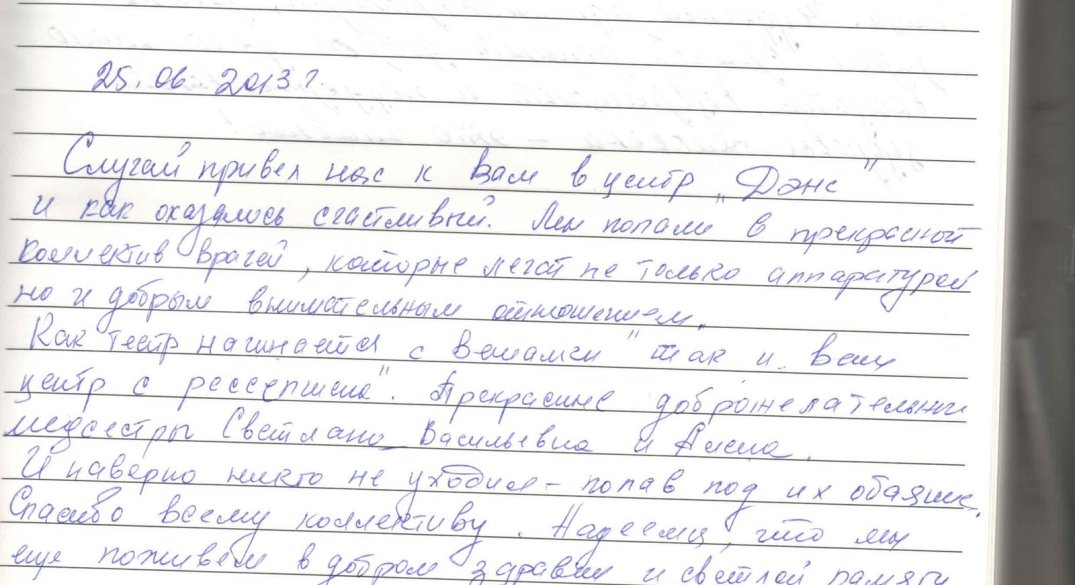 25.06.2013 г.
Случай привел нас к Вам в центр "Дэнс"
и как оказалось счастливый. Мы попали в прекрасный
коллектив врачей, которые лечат не только аппаратурой
но и добрым внимательным отношением.
Как театр начинается с вешалки "так и Ваш
центр с рессепшена". Прекрасные доброжелательные
медсестры Светлана Васильевна и Алена.
И наверно никто не уходил - попав под их обаяние.
Спасибо всему коллективу. Надеемся, что мы
еще поживем в добром здравии и светлой памяти